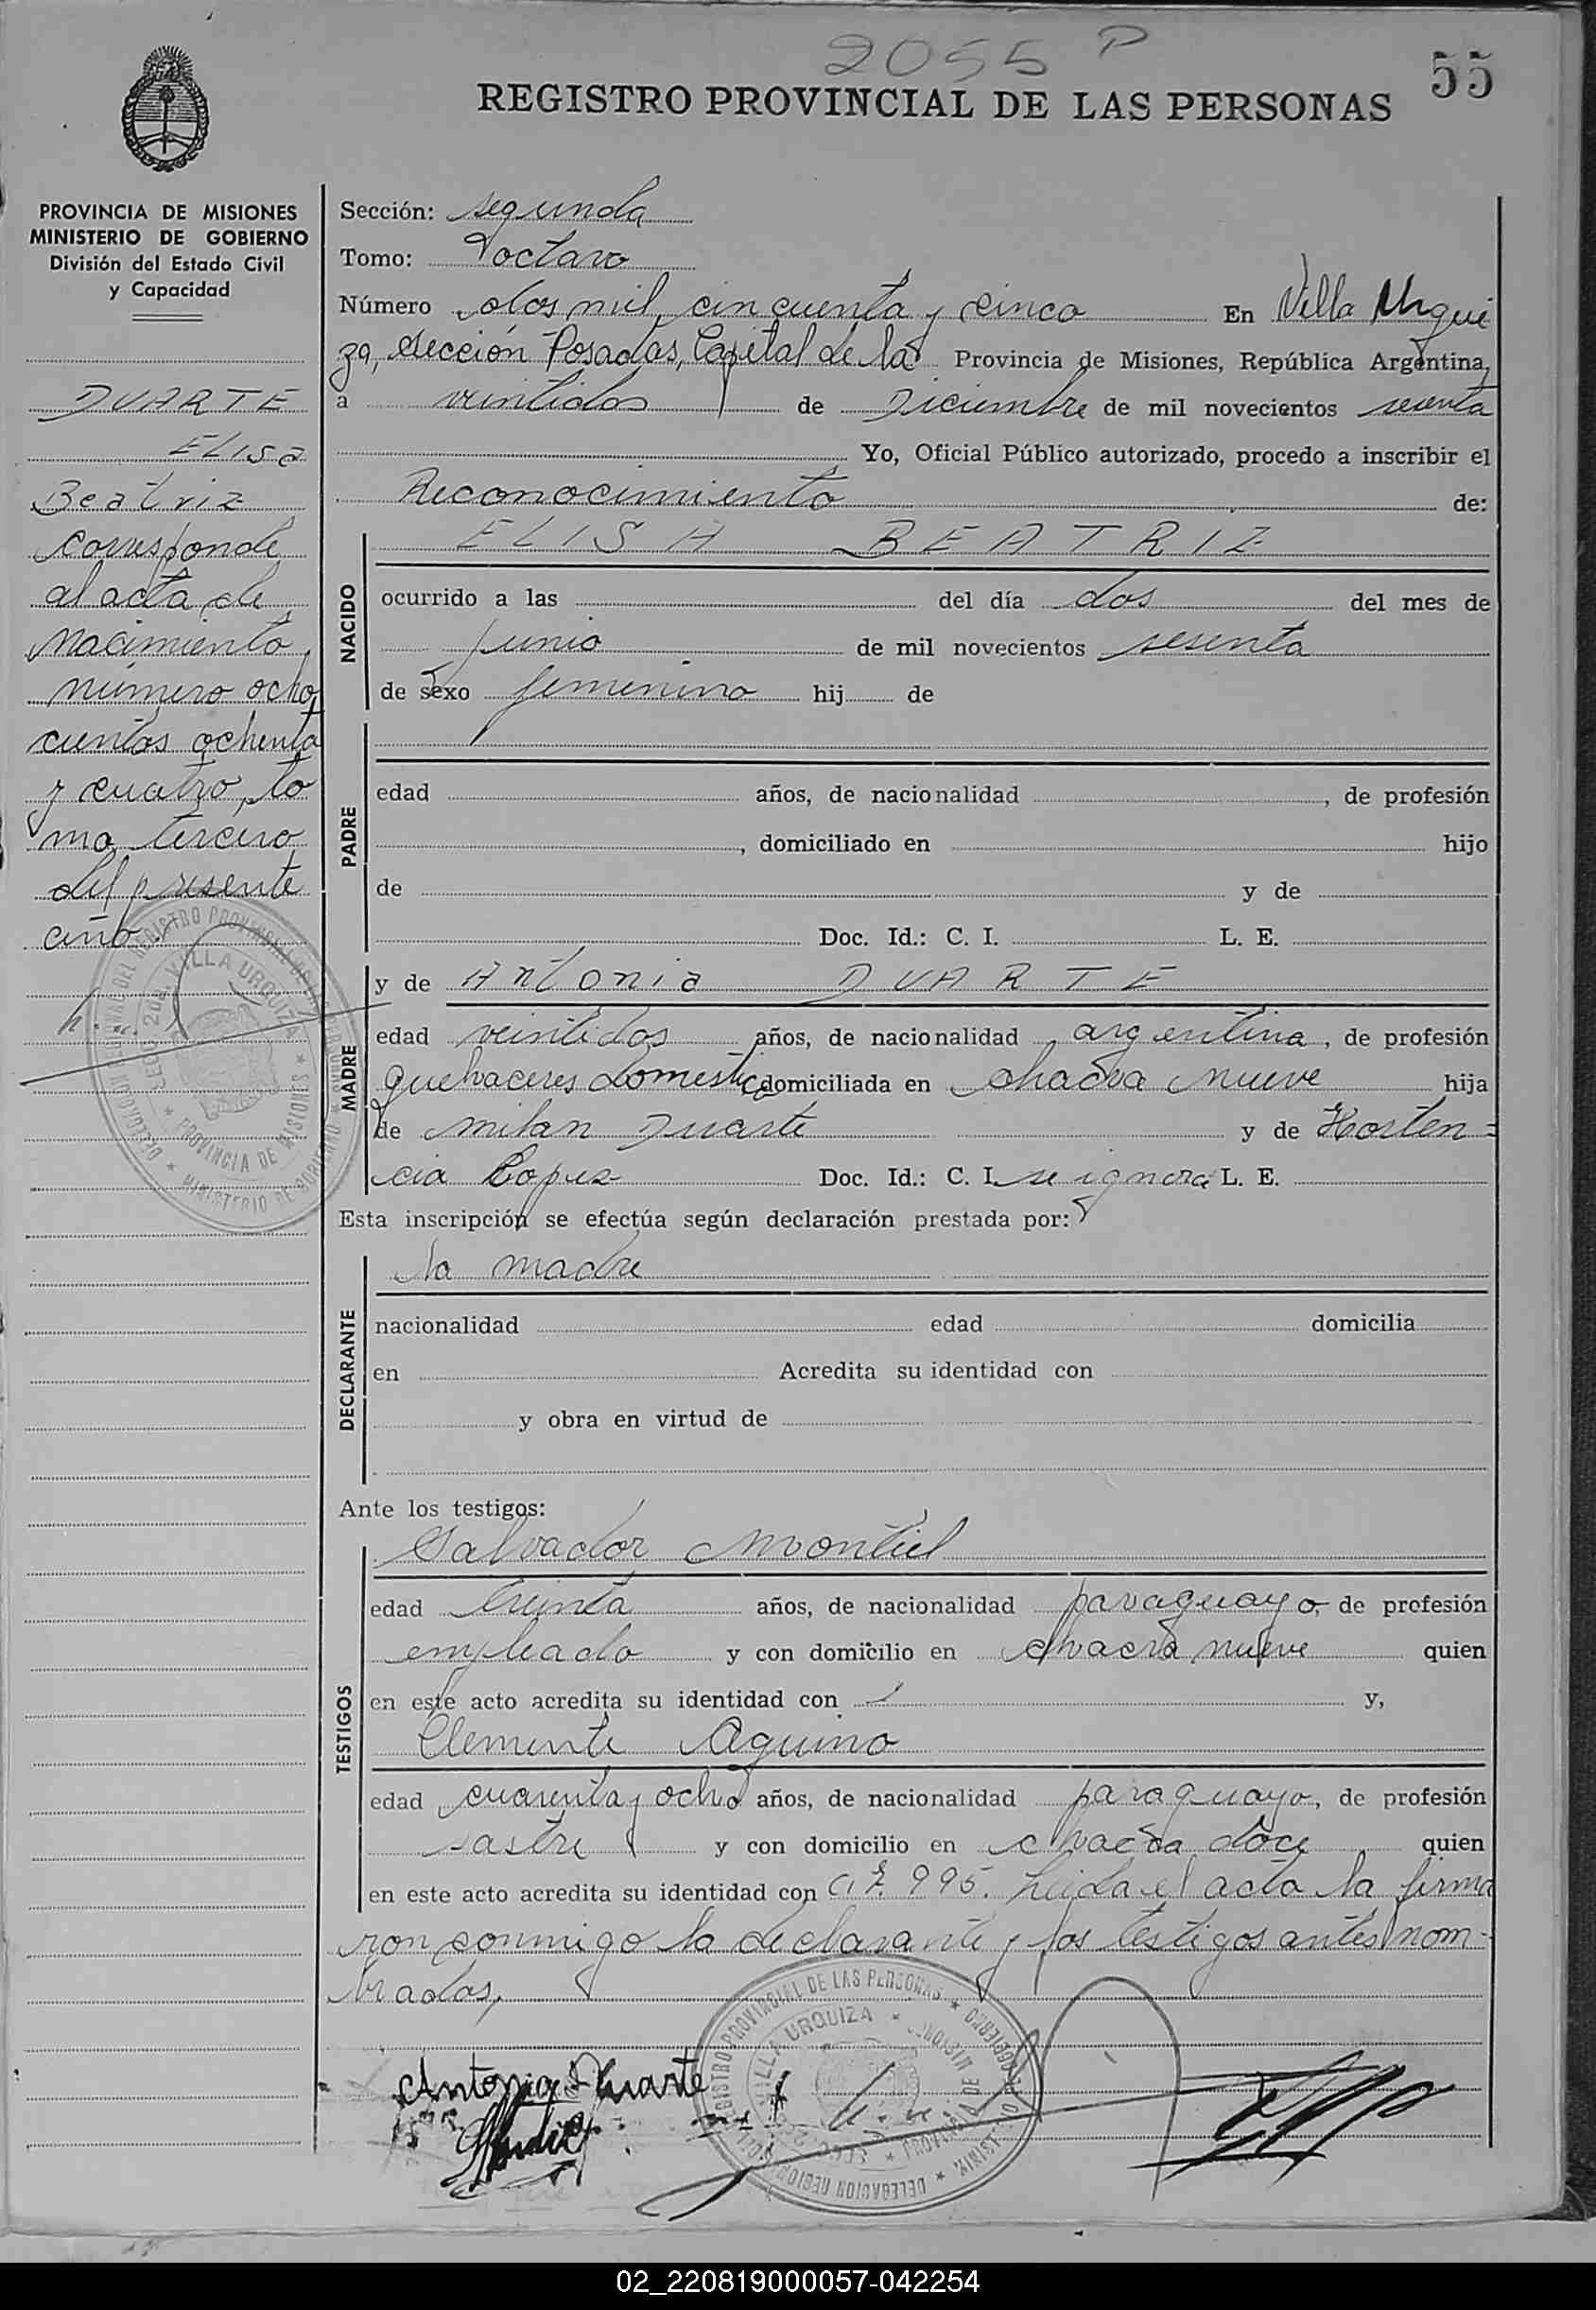 2055 P
55
REGISTRO PROVINCIAL DE LAS PERSONAS
PROVINCIA DE MISIONES
MINISTERIO DE GOBIERNO
División del Estado Civil
y Capacidad
DUARTE
ELISA
Beatriz
corresponde
al acta de
nacimiento
número ocho
cientos ochenta
y cuatro, to
mo tercero
del presente
año.
Sección: segunda
Tomo: octavo
Número dos mil, cincuenta y cinco En Villa Urqui
za, sección Posadas, Capital de la Provincia de Misiones, República Argentina,
a veintidos de Diciembre de mil novecientos sesenta
Yo, Oficial Público autorizado, procedo a inscribir el
Reconocimiento de:
NACIDO
ELISA BEATRIZ
ocurrido a las del día dos del mes de
junio de mil novecientos sesenta
de sexo femenino hij de
PADRE
edad años, de nacionalidad , de profesión
, domiciliado en hijo
de y de
Doc. Id.: C. I. L. E.
MADRE
y de Antonia DUARTE
edad veintidos años, de nacionalidad argentina, de profesión
quehaceres domestico domiciliada en chacra nueve hija
de milan Duarte y de Horten=
cia Lopez Doc. Id.: C. I. se ignora L. E.
Esta inscripción se efectúa según declaración prestada por:
DECLARANTE
la madre
nacionalidad edad domicilia
en Acredita su identidad con
y obra en virtud de
Ante los testigos:
TESTIGOS
Salvador Montiel
edad treinta años, de nacionalidad paraguayo, de profesión
empleado y con domicilio en chacra nueve quien
en este acto acredita su identidad con y,
Clemente Aquino
edad cuarenta y ocho años, de nacionalidad paraguayo, de profesión
sastre y con domicilio en chacra doce quien
en este acto acredita su identidad con 995. Leida el acta la firma
ron conmigo la declarante y los testigos antes nom-
brados,
REGISTRO PROVINCIAL DE LAS PERSONAS
VILLA URQUIZA
PROVINCIA DE MISIONES
MINISTERIO DE GOBIERNO
DELEGACION REGIONAL
Antonia Duarte
02_220819000057-042254